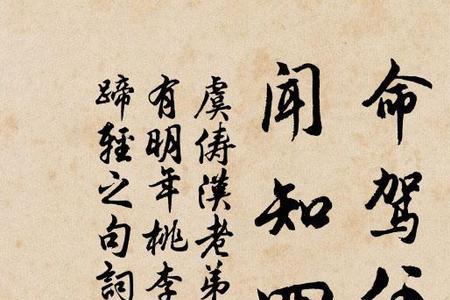 命駕
聞知四
虞儔漢老弟
有明年桃李
蹄輕之句詞